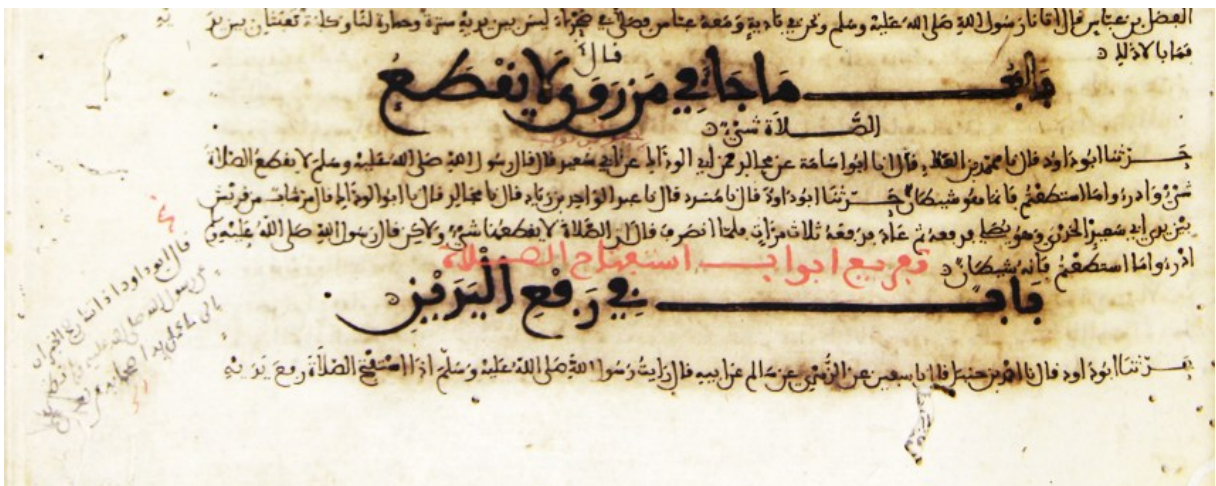 الفضل بن عباس قال اتانا رسول الله صلى الله عليه وسلم ونحن في بادية ومعه عباس فصلى في صحراء ليس بين يديه سترة وحمارة لنا وكلبة تعبثان بين يديه
فما بالا ذلك
باب ما جا في من روى لا يقطع
قال
الصلاة شيء
حدثنا ابو داود قال نا محمد بن العلاء قال نا ابو اسامة عن مجالد عن ابي الوداك عن ابي سعيد قال قال رسول الله صلى الله عليه وسلم لا يقطع الصلاة
شيء وادرءوا ما استطعتم فانما هو شيطان حدثنا ابو داود قال نا مسدد قال نا عبد الواحد بن زياد قال نا مجالد قال نا ابو الوداك قال مر شاب من قريش
بين يدي ابي سعيد الخدري وهو يصلي فدفعه ثم عاد فدفعه ثلاث مرات فلما انصرف قال ان الصلاة لا يقطعها شيء ولاكن قال رسول الله صلى الله عليه وسلم
ادرءوا ما استطعتم فانه شيطان
تفريع ابواب استفتاح الصلاة
باب في رفع اليدين
حدثنا ابو داود قال نا احمد بن حنبل قال نا سفين عن الزهري عن سالم عن ابيه قال رايت رسول الله صلى الله عليه وسلم اذا استفتح الصلاة رفع يديه
قال ابو داود اذا تنازع الخبران
عن رسول الله صلى الله عليه وسلم